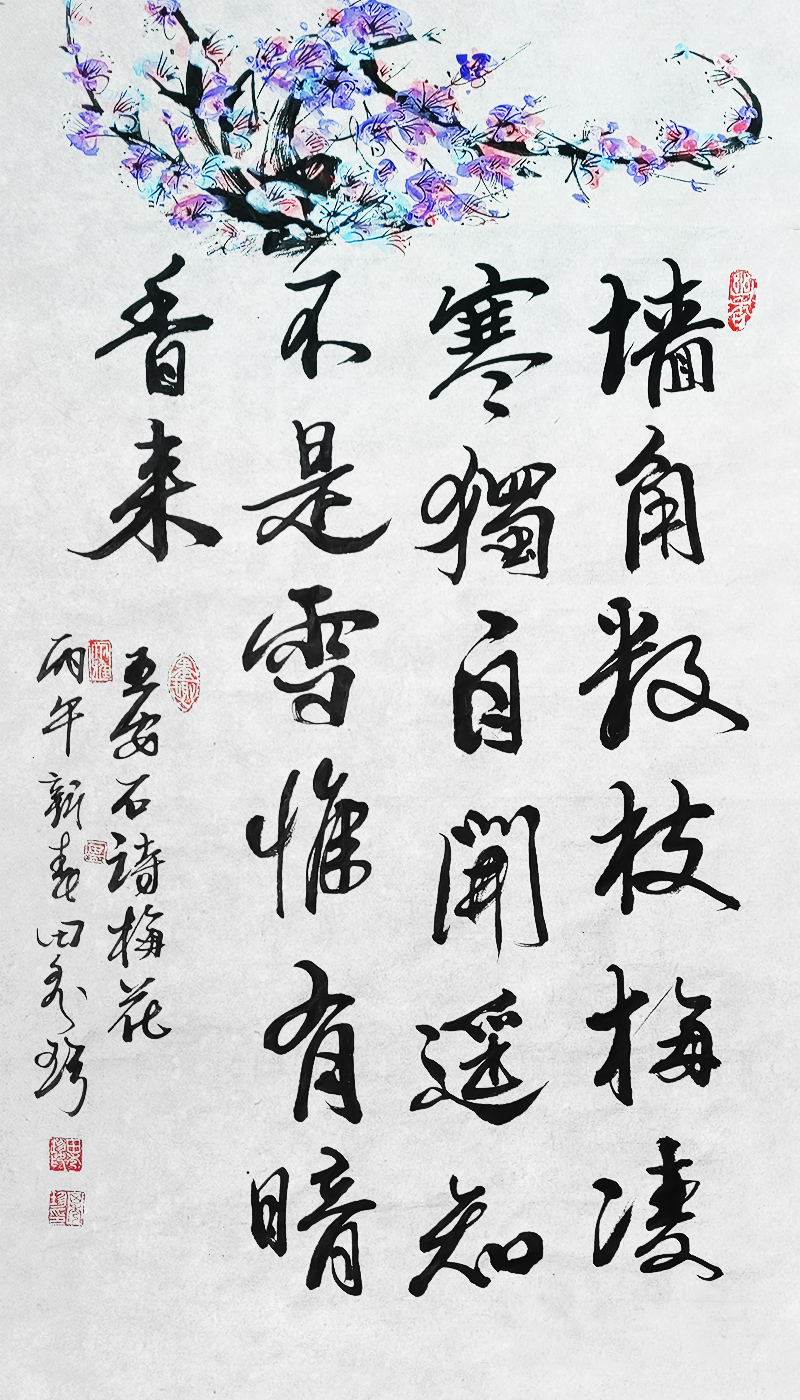 墙角数枝梅凌
寒獨自開遥知
不是雪惟有暗
香来
王安石詩梅花
丙午新春田